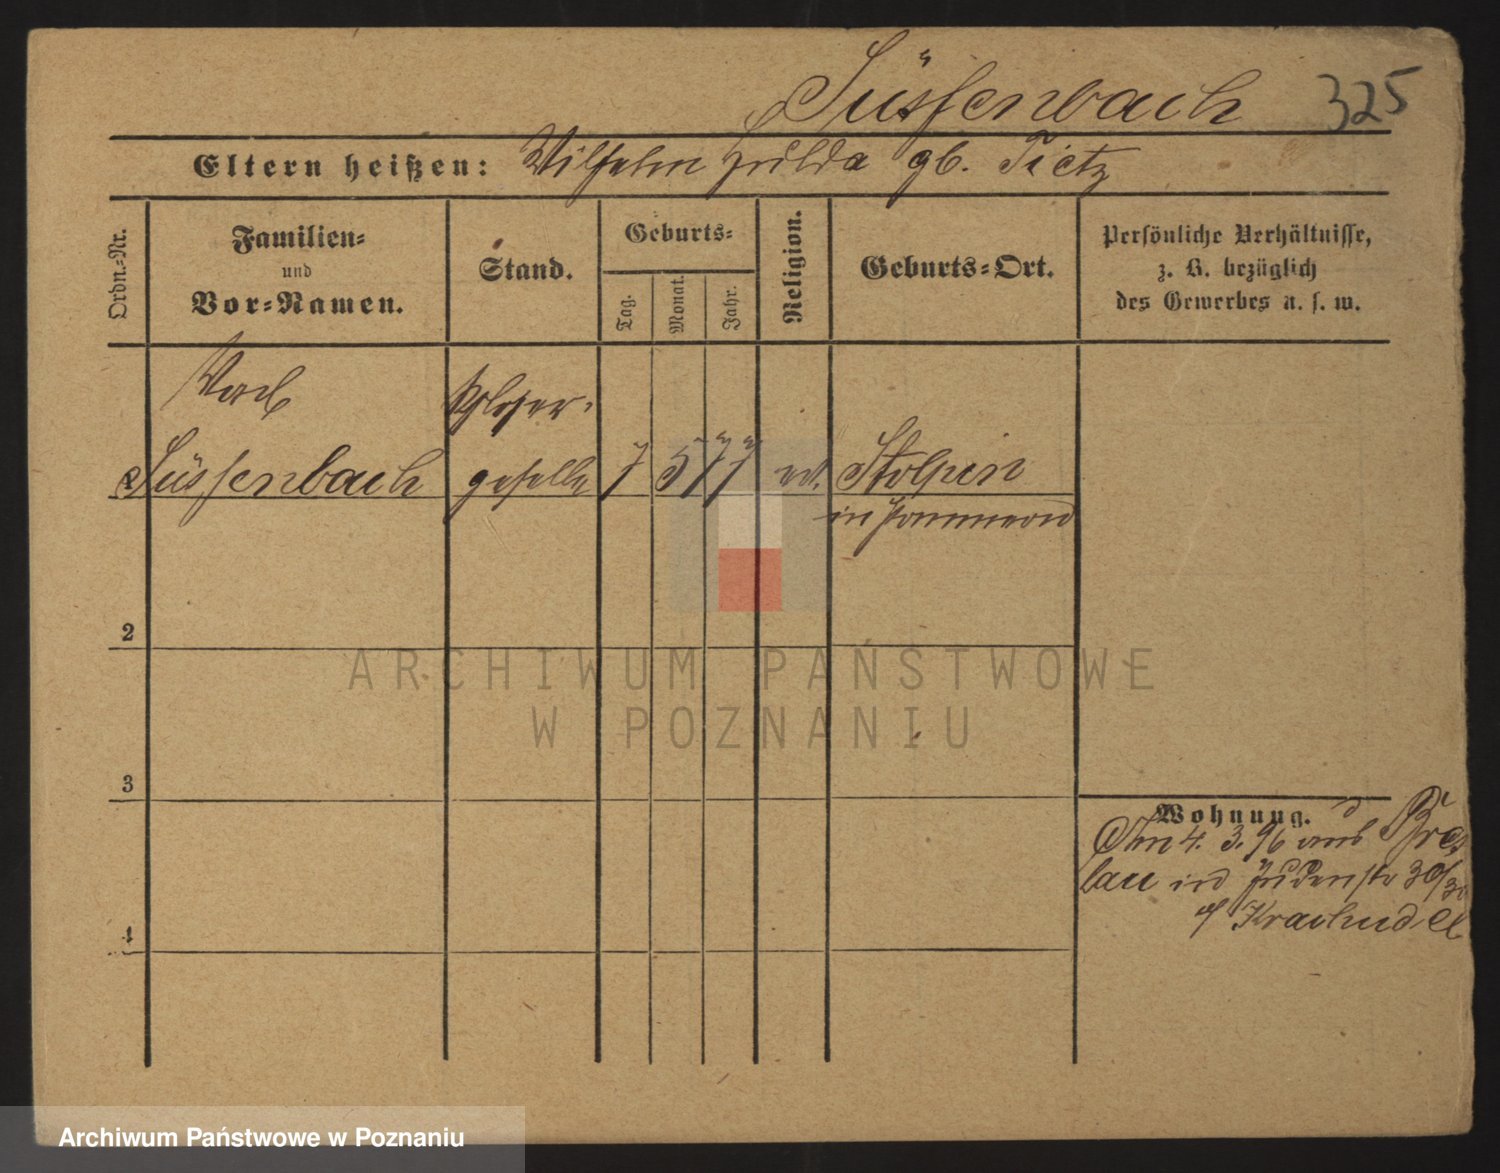 Süssenbach 325
Eltern heißen: Wilhelm Hulda gb. Tietz
Ordn.-Nr.
Familien-
und
Vor-Namen.
Stand.
Geburts-
Tag.
Monat.
Jahr.
Religion.
Geburts-Ort.
Persönliche Verhältnisse,
z. B. bezüglich
des Gewerbes u. s. w.
Süssenbach
geselle 7 5 77 ev. Stolpin
in Pommern
2
3
4
Wohnung.
Am 4. 3. 96 aus Bres
lau in Judenstr 30/30
ARCHIWUM PAŃSTWOWE
W POZNANIU
Archiwum Państwowe w Poznaniu